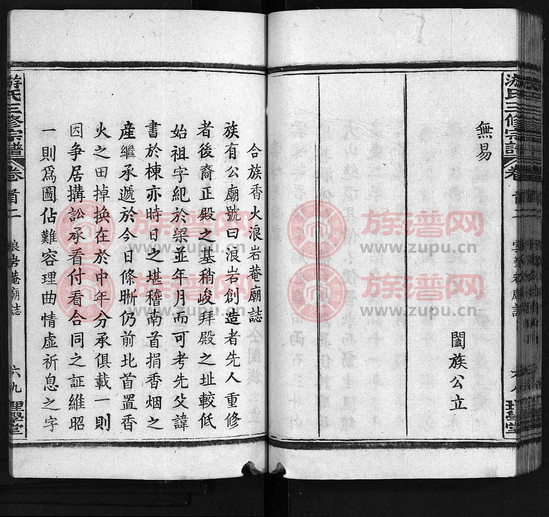 游氏三修宗譜
卷首二
無易
闔族公立
理學堂
合族香火浪岩菴廟誌
族有公廟號曰浪岩創造者先人重修
者後裔正殿之基稍峻拜殿之址較低
始祖字紀於梁並年月而可考先父諱
書於棟亦時日之堪稽南首捐香烟之
產繼承遞於今日條晰仍前北首置香
火之田掉換在於中年分承俱載一則
因爭居搆訟承看付看合同之証維昭
一則爲圖佔難容理曲情虛祈息之字
游氏三修宗譜
卷首二
浪岩菴廟誌
六九
理學堂
族谱网
www.zupu.cn
族谱网
www.zupu.cn
族谱网
www.zupu.cn
族谱网
www.zupu.cn